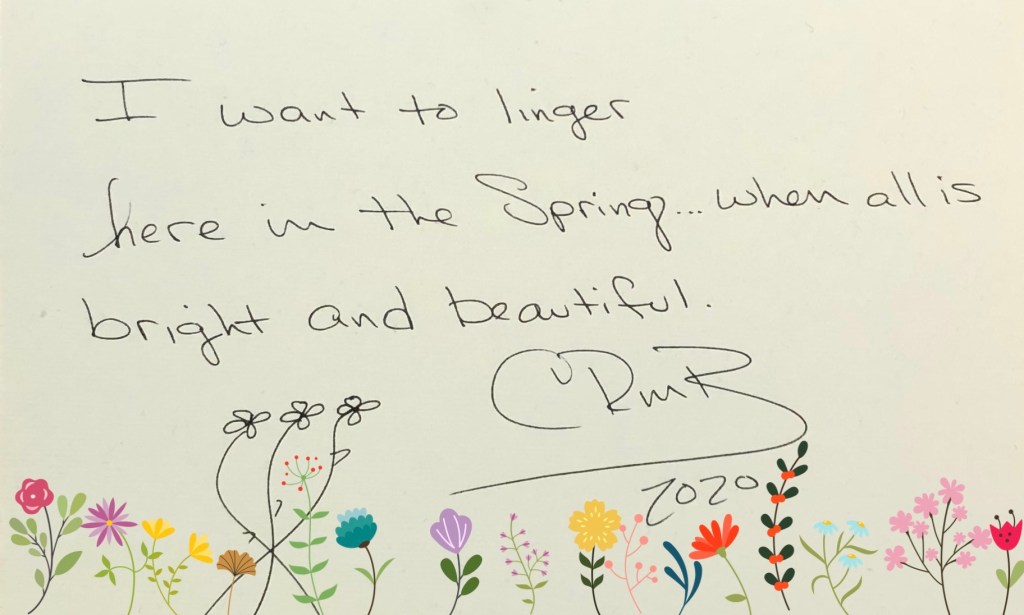 I want to linger
here in the Spring... when all is
bright and beautiful.
CRmR
2020